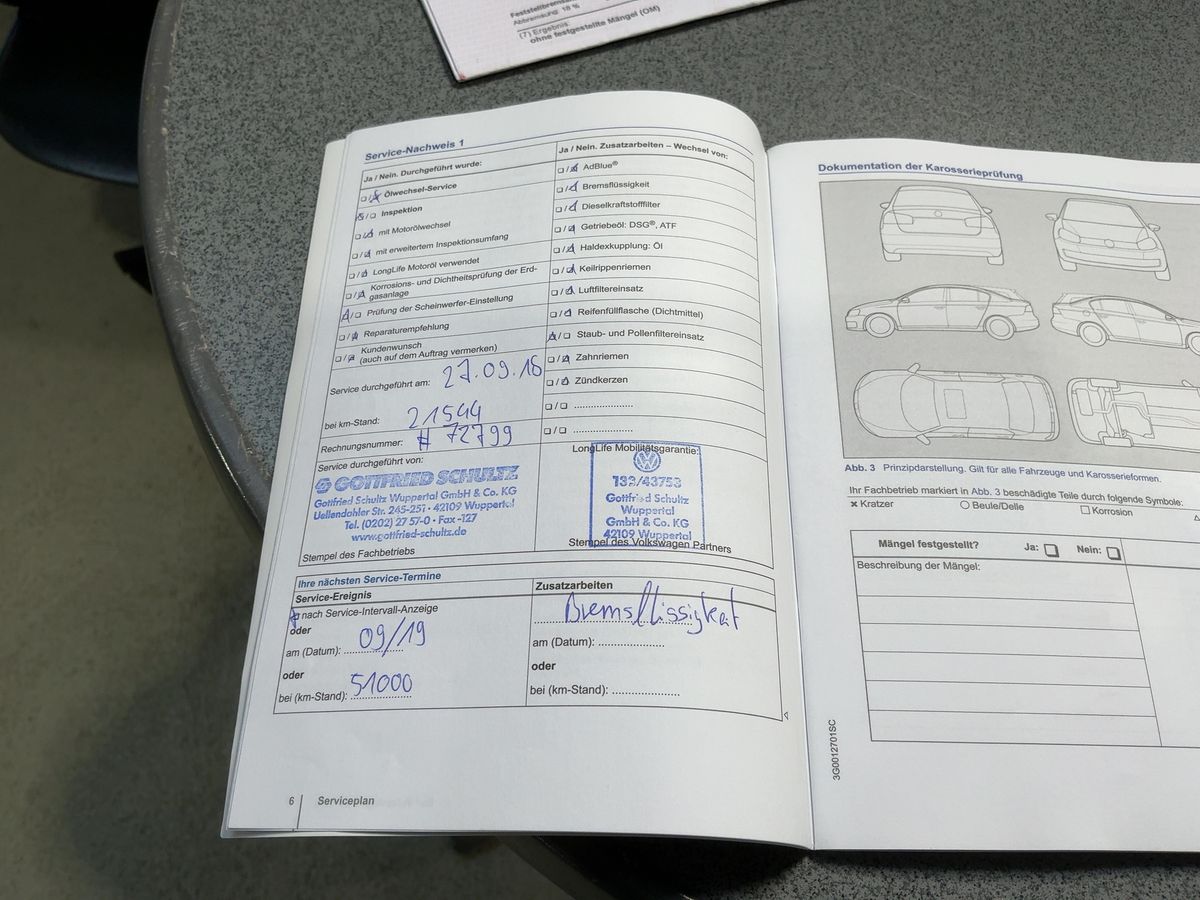 Feststellbremsan
Abbremsung: 18 %
(7) Ergebnis:
ohne festgestellte Mängel (OM)
Service-Nachweis 1
Ja / Nein. Durchgeführt wurde:
Ölwechsel-Service
Inspektion
mit Motorölwechsel
mit erweitertem Inspektionsumfang
LongLife Motoröl verwendet
Korrosions- und Dichtheitsprüfung der Erd-
gasanlage
Prüfung der Scheinwerfer-Einstellung
Reparaturempfehlung
Kundenwunsch
(auch auf dem Auftrag vermerken)
Service durchgeführt am: 27.09.18
bei km-Stand: 21544
Rechnungsnummer: # 72799
Service durchgeführt von:
GOTTFRIED SCHULTZ
Gottfried Schultz Wuppertal GmbH & Co. KG
Uellendahler Str. 245-251 · 42109 Wuppertal
Tel. (0202) 27 57-0 · Fax -127
www.gottfried-schultz.de
Stempel des Fachbetriebs
Ja / Nein. Zusatzarbeiten – Wechsel von:
AdBlue®
Bremsflüssigkeit
Dieselkraftstofffilter
Getriebeöl: DSG®, ATF
Haldexkupplung: Öl
Keilrippenriemen
Luftfiltereinsatz
Reifenfüllflasche (Dichtmittel)
Staub- und Pollenfiltereinsatz
Zahnriemen
Zündkerzen
LongLife Mobilitätsgarantie:
132/43753
Gottfried Schultz
Wuppertal
GmbH & Co. KG
42109 Wuppertal
Stempel des Volkswagen Partners
Ihre nächsten Service-Termine
Service-Ereignis
nach Service-Intervall-Anzeige
oder
am (Datum): 09/19
oder
bei (km-Stand): 51000
Zusatzarbeiten
Bremsflissigkat
am (Datum): ..................
oder
bei (km-Stand): ..................
6 Serviceplan
Dokumentation der Karosserieprüfung
Abb. 3 Prinzipdarstellung. Gilt für alle Fahrzeuge und Karosserieformen.
Ihr Fachbetrieb markiert in Abb. 3 beschädigte Teile durch folgende Symbole:
Kratzer Beule/Delle Korrosion
Mängel festgestellt? Ja: Nein:
Beschreibung der Mängel:
3G0012701SC